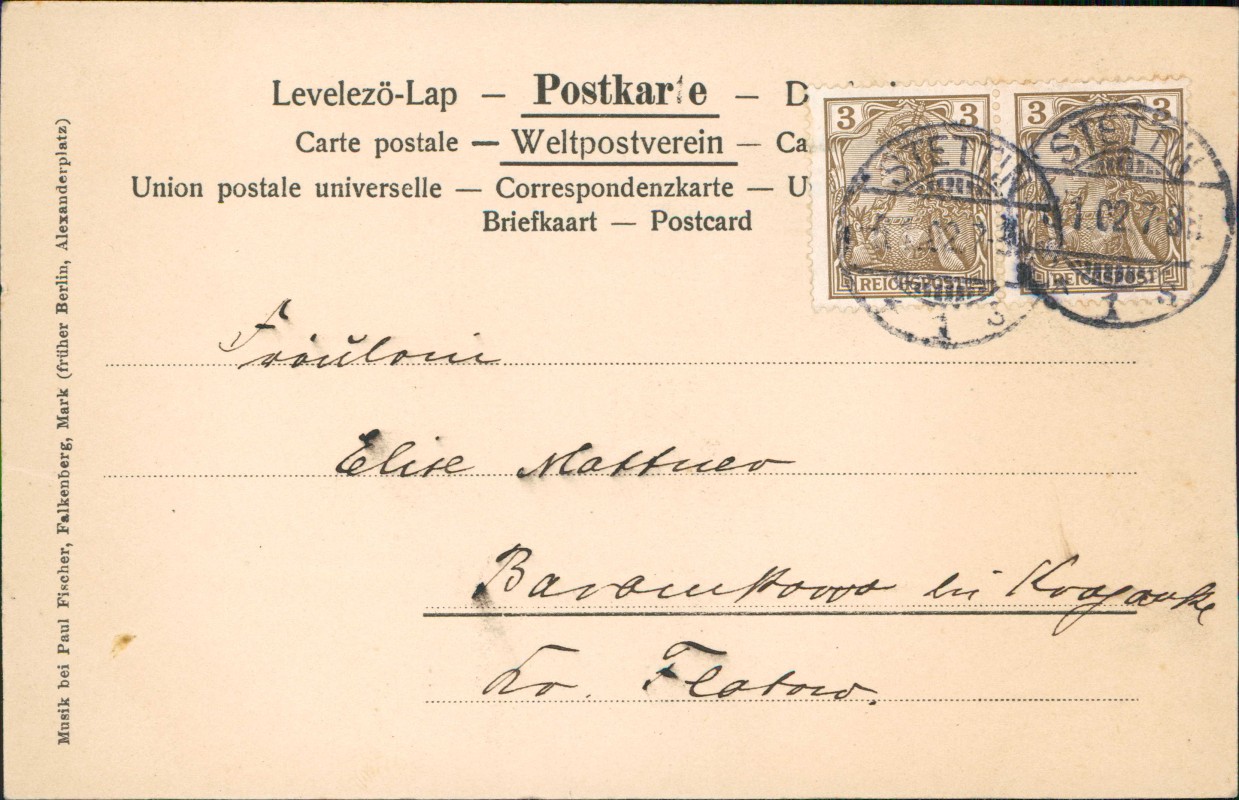 Levelezö-Lap — Postkarte — D
Carte postale — Weltpostverein — Ca
Union postale universelle — Correspondenzkarte — U
Briefkaart — Postcard
3 3
REICHSPOST
3 3
REICHSPOST
STETTIN
02
1
STETTIN
1 02 7
1
Fräulein
Elise Mattner
bei
Kr. Flatow.
Musik bei Paul Fischer, Falkenberg, Mark (früher Berlin, Alexanderplatz)